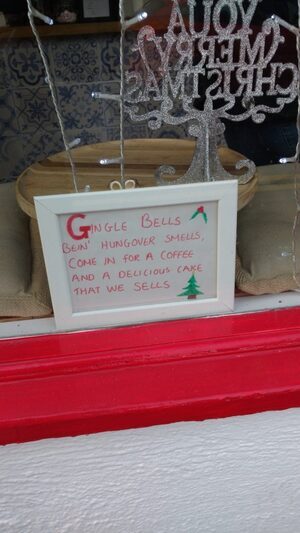 YOU A
MERRY
CHRISTMAS
GINGLE BELLS
BEIN' HUNGOVER SMELLS,
COME IN FOR A COFFEE
AND A DELICIOUS CAKE
THAT WE SELLS